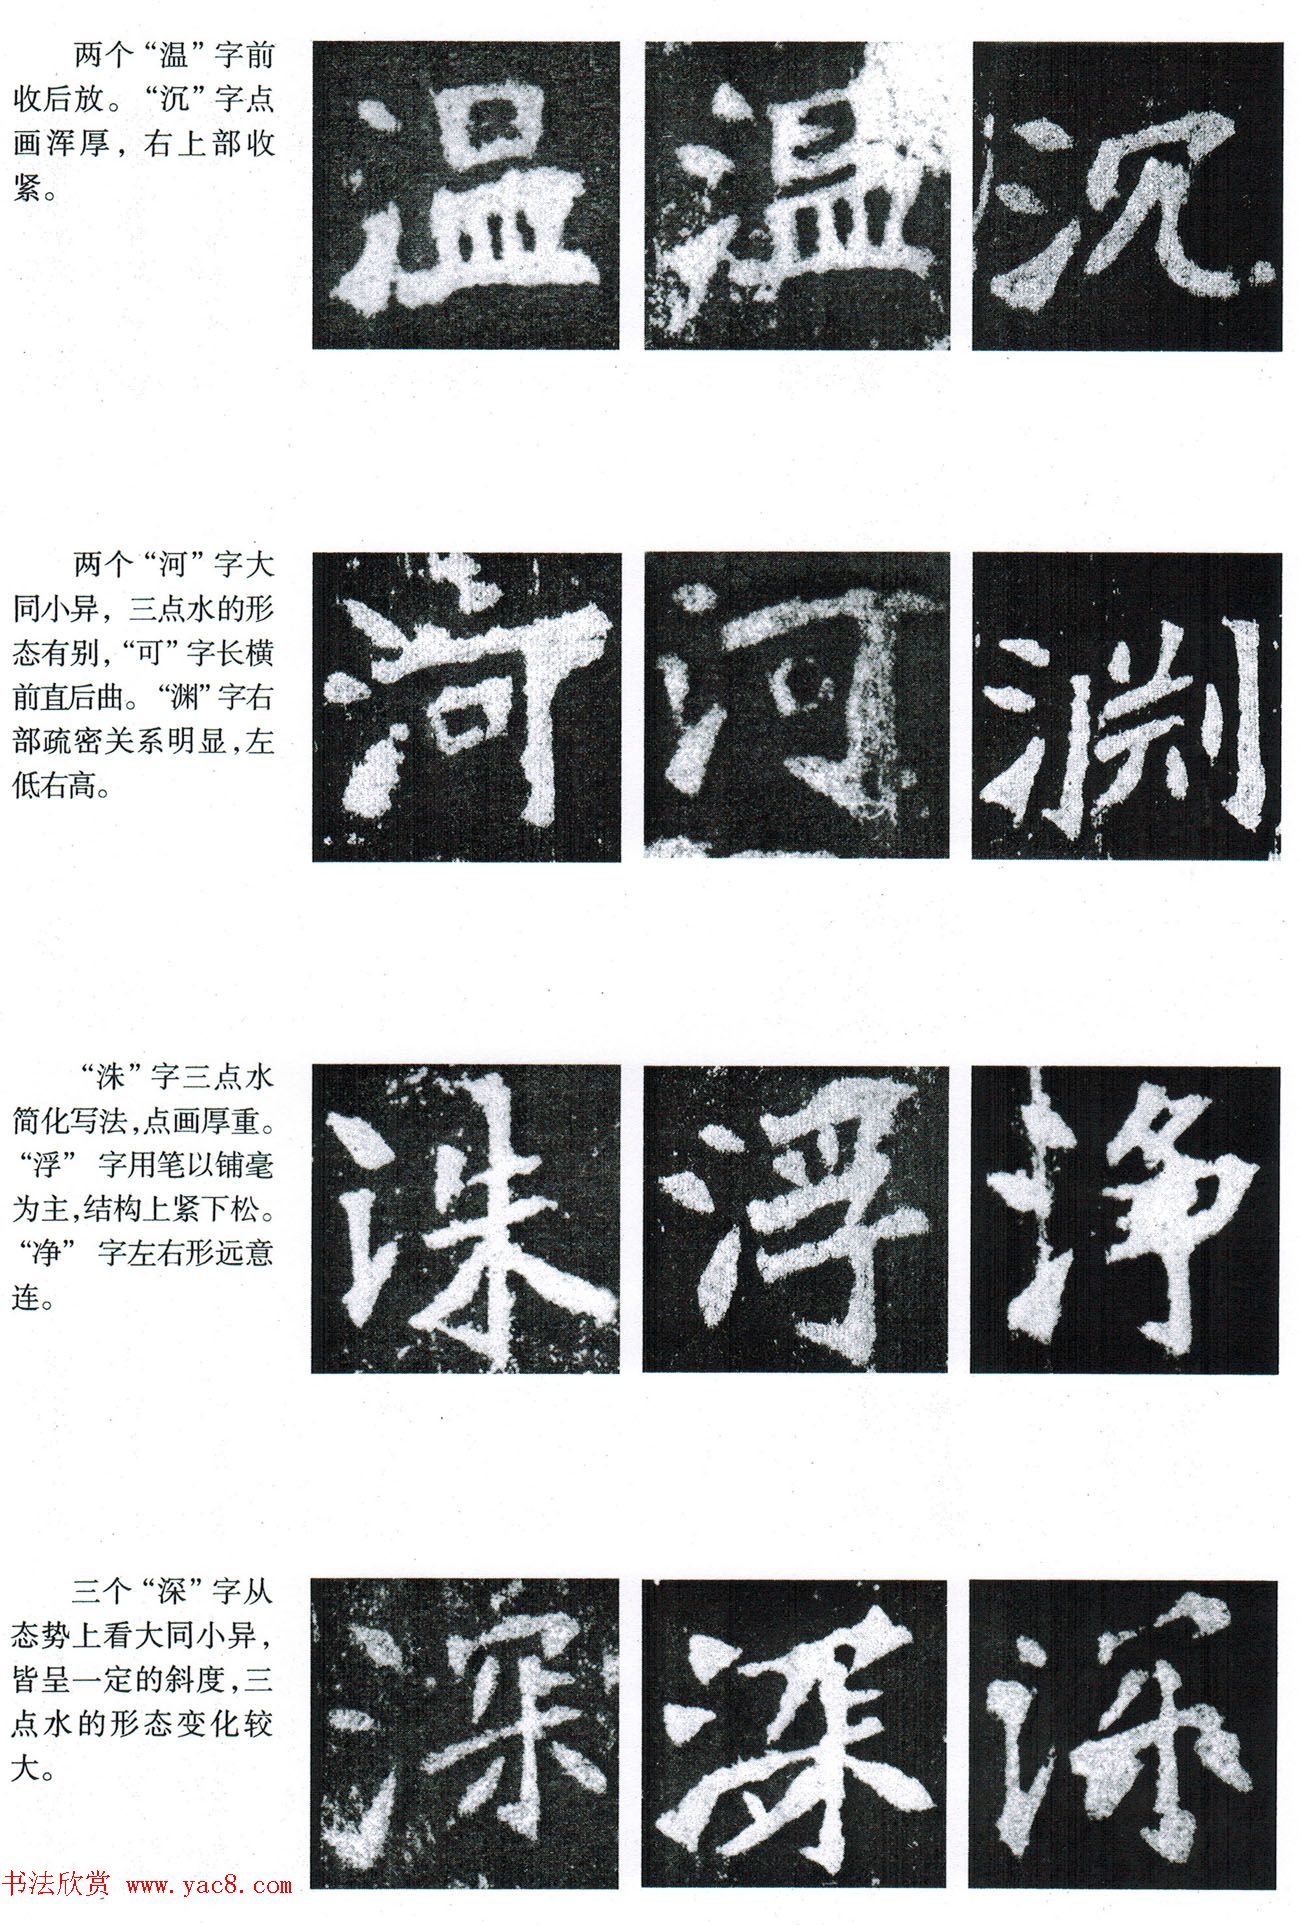 两个“温”字前
收后放。“沉”字点
画浑厚，右上部收
紧。
温 温 沉
两个“河”字大
同小异，三点水的形
态有别，“可”字长横
前直后曲。“渊”字右
部疏密关系明显，左
低右高。
河 河 渊
“洙”字三点水
简化写法，点画厚重。
“浮” 字用笔以铺毫
为主，结构上紧下松。
“净” 字左右形远意
连。
洙 浮 净
三个“深”字从
态势上看大同小异，
皆呈一定的斜度，三
点水的形态变化较
大。
深 深 深
书法欣赏 www.yac8.com